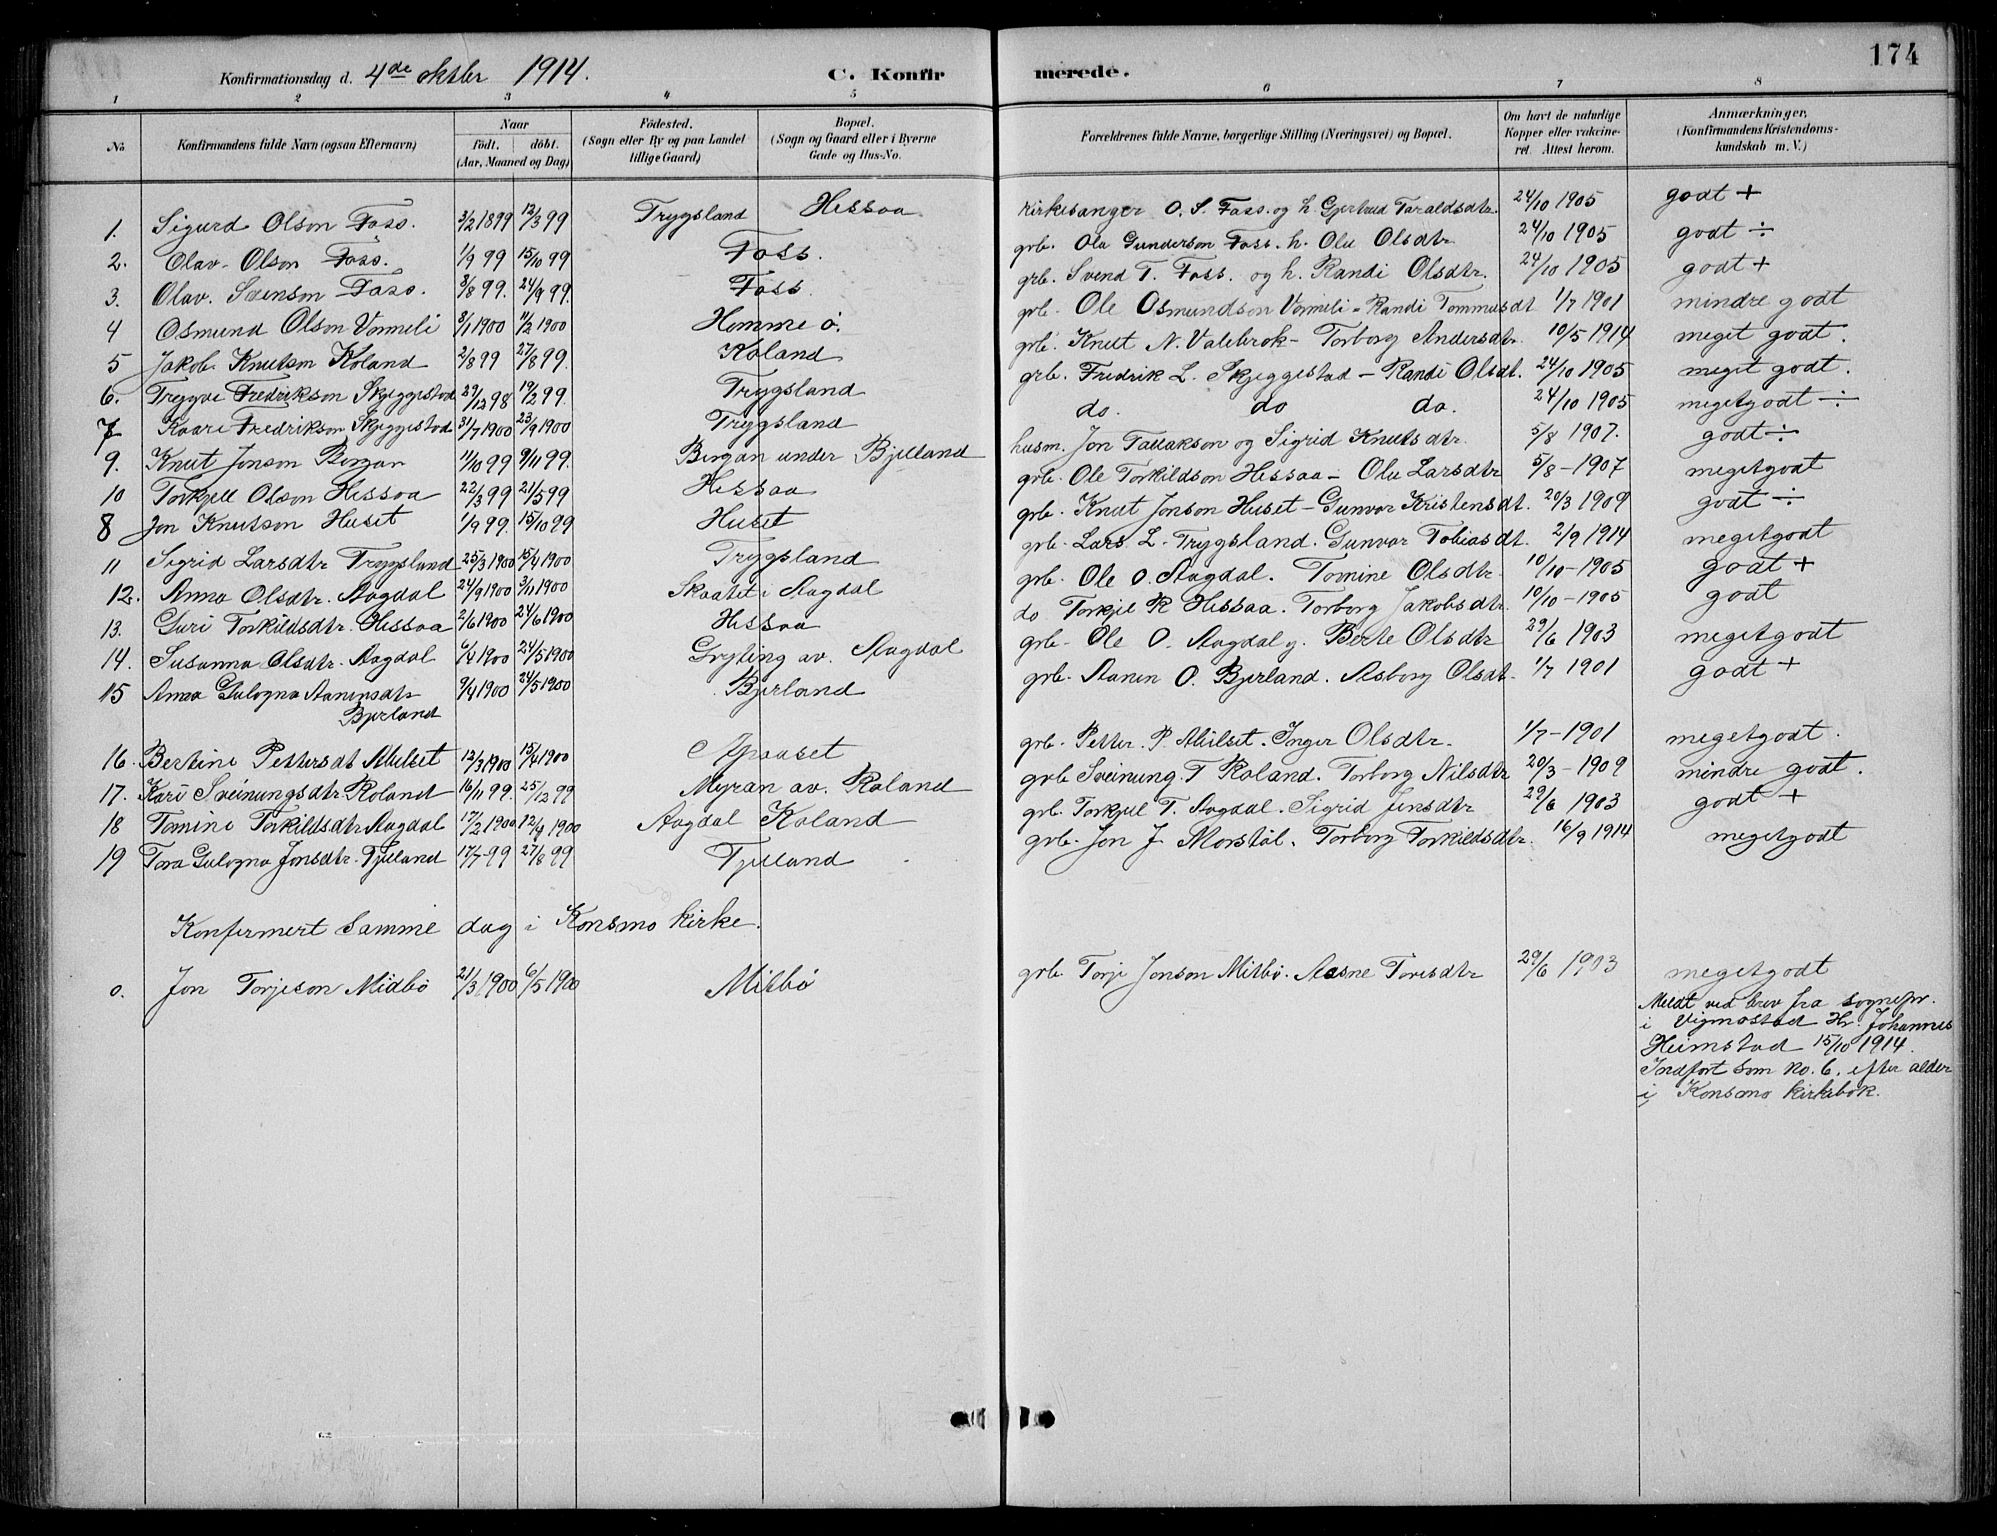 174
Konfirmationsdag d. 4de oktbr 1914. C. Konfirmerede.
1 2 3 4 5 6 7 8
No.
Konfirmandens fulde Navn (ogsaa Efternavn)
Naar
födt. döbt.
(Aar, Maaned og Dag)
Födested.
(Sogn eller By og paa Landet
tillige Gaard)
Bopæl.
(Sogn og Gaard eller i Byerne
Gade og Hus-No.
Forældrenes fulde Navne, borgerlige Stilling (Næringsvei) og Bopæl.
Om havt de naturlige
Kopper eller vakcine-
ret. Attest herom.
Anmærkninger,
(Konfirmandens Kristendoms-
kundskab m. V.)
1. Sigurd Olson Foss. 3/2 1899 12/3 99 Trygsland Hessaa kirkesanger O. S. Foss. og h. Gjertrud Taraldsdtr. 24/10 1905 godt +
2. Olav Olson Foss. 1/9 99 15/10 99 Foss. grb. Ola Gunderson Foss. h. Olu Olsdtr 24/10 1905 godt ÷
3. Olav. Svenson Foss. 3/8 99. 24/9 99. Foss grb. Svend T. Foss. og h. Randi Olsdtr. 24/10 1905 godt +
4 Osmund Olson Vormeli 3/1 1900 11/2 1900 Homme ö. grb. Ole Osmundson Vormeli - Randi Tommasdt 1/7 1901 mindre godt
5 Jakob Knutson Koland 2/8 99 27/8 99. Koland grb. Knut N. Valebrok - Torborg Andersdtr. 10/5 1914 meget godt.
6. Trygve Fredrikson Skjeggestad 29/12 98 19/2 99. Trygsland grb. Fredrik L. Skjeggestad - Randi Olsdt. 24/10 1905 meget godt.
7 Kaare Fredrikson Skjeggestad 31/7 1900 23/9 1900 Trygsland do. do do. 24/10 1905 megetgodt ÷
9. Knut Jonson Bergan 11/10 99 9/11 99. Bergan under Bjelland husm. Jon Tallakson og Sigrid Knutsdtr. 5/8 1907. godt ÷
10 Torkjell Olson Hessaa 22/3 99 21/5 99 Hessaa grb. Ole Torkildson Hessaa - Olu Larsdtr 5/8 - 1907 megetgodt
8 Jon Knutson Huset 1/9 99. 15/10 99 Huset grb. Knut Jonson Huset - Gunvor Kristensdt. 20/3 1909 godt ÷
11 Sigrid Larsdtr Trygsland 25/3 1900 15/4 1900 Trygsland grb. Lars L. Trygsland. Gunvor Tobiasdt. 2/9 1914 megetgodt
12. Anna Olsdtr. Aagdal 24/9 1900 3/11 1900 Skaatet i Aagdal grb. Ole O. Aagdal. Tomine Olsdtr 10/10 - 1905 godt +
13. Guri Torkildsdtr. Hessaa 2/6 1900 24/6 1900 Hessaa do Torkjel K Hessaa. Torborg Jakobsdtr. 10/10 - 1905 godt
14. Susanna Olsdtr. Aagdal 6/4 1900 24/5 1900 Gryting av. Aagdal grb. Ole O. Aagdal g. Berte Olsdtr 29/6 1903 megetgodt
15 Anna Gulogna Aanensdtr 9/4 1900 24/5 1900 Bjerland grb. Aanen O. Bjerland. Aasborg Olsdt. 1/7 1901 godt +
Bjerland
16. Bertine Pettersdt 12/3 1900 15/4 1900 grb. Petter. P. Inger Olsdtr. 1/7 - 1901 megetgodt.
17. Kari Sveinungsdtr Roland 16/11 99. 25/12 99 Myran av. Roland grb Sveinung T Roland. Torborg Nilsdtr 20/3 - 1909 mindre godt.
18 Tomine Torkildsdtr Aagdal 17/2 1900 12/4 1900 Aagdal Koland grb. Torkjell T. Aagdal. Sigrid Jensdtr 29/6 1903 godt +
19 Tora Gulogna Jonsdtr. Tjelland 17/7 99 27/8 99 Tjelland grb. Jon J Morstöl. Torborg Torkildsdtr. 16/9 1914 megetgodt
Konfermert samme dag i Konsmo kirke.
o. Jon Torjeson Midbö 21/3 1900 6/5 1900 Mitbö grb. Torje Jonson Mitbö. Aasne Toresdtr 29/6 1903 megetgodt
Meldt ved brev fra sognepr.
i Vigmostad Hr. Johannes
Heimstad 15/10 1914.
Indfört som no. 6. efter alder
i Konsmo kirkebok.